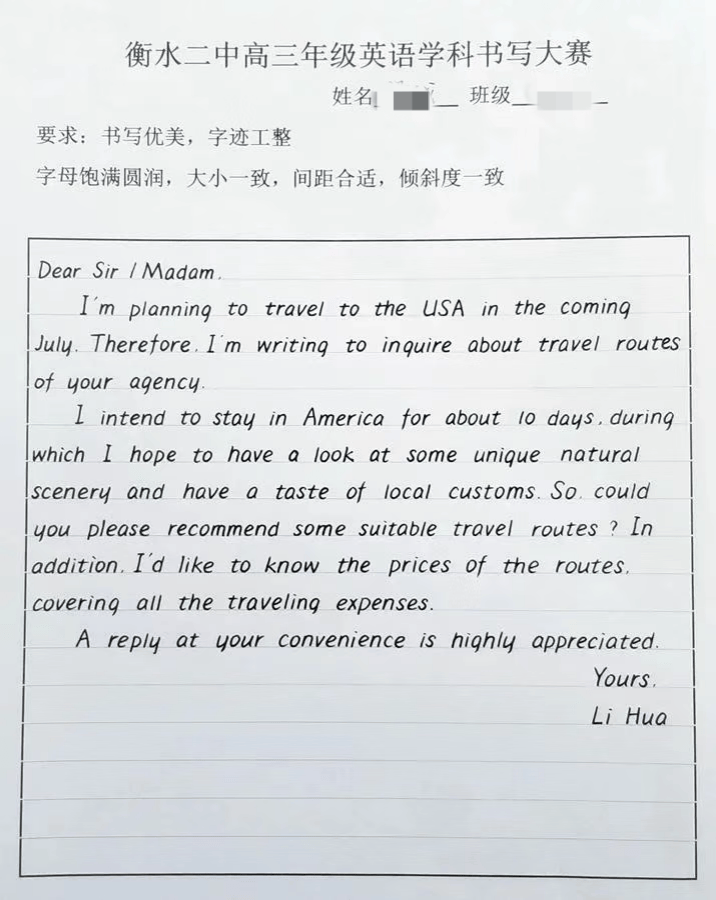 衡水二中高三年级英语学科书写大赛
姓名 班级
要求：书写优美，字迹工整
字母饱满圆润，大小一致，间距合适，倾斜度一致
Dear Sir / Madam,
I'm planning to travel to the USA in the coming
July. Therefore, I'm writing to inquire about travel routes
of your agency.
I intend to stay in America for about 10 days, during
which I hope to have a look at some unique natural
scenery and have a taste of local customs. So, could
you please recommend some suitable travel routes ? In
addition, I'd like to know the prices of the routes,
covering all the traveling expenses.
A reply at your convenience is highly appreciated.
Yours,
Li Hua